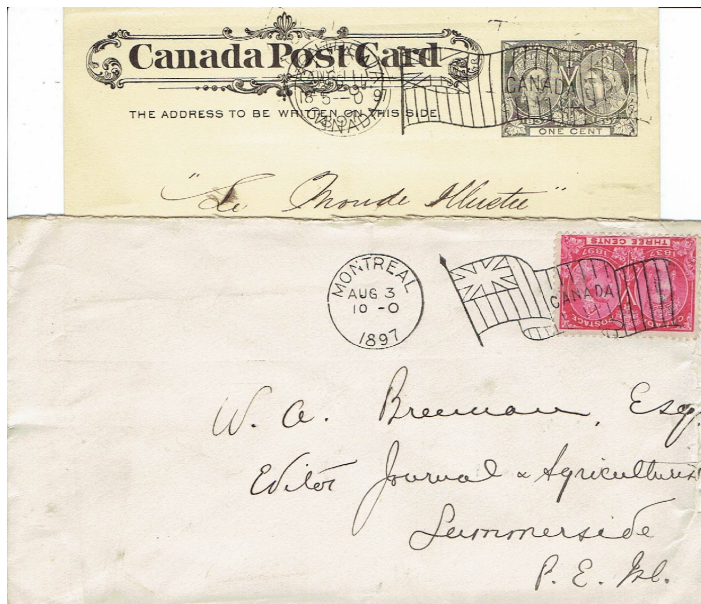 Canada Post Card
THE ADDRESS TO BE WRITTEN ON THIS SIDE
CANADA
CANADA
ONE CENT
"Le Monde Illustré"
MONTREAL
AUG 3
10-0
1897
CANADA
THREE CENTS
1837 1897
CANADA POSTAGE
W. A. Brennan, Esq.
Editor Journal & Agriculturist
Summerside
P. E. Isl.